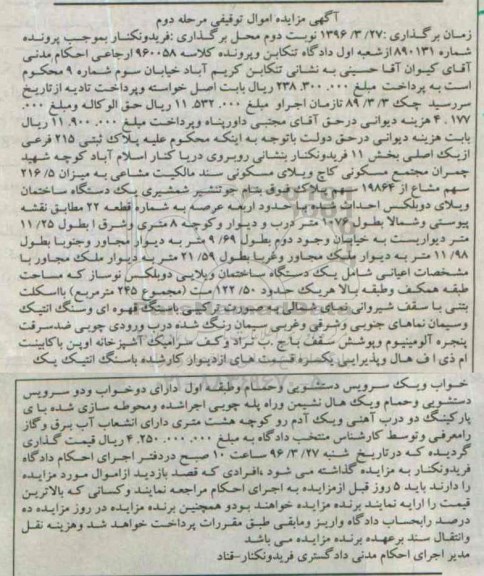 آگهی مزایده اموال توقیفی مرحله دوم
زمان برگذاری :۱۳۹۶/۳/۲۷ نوبت دوم محل برگذاری :فریدونکنار بموجب پرونده
شماره ۸۹۰۱۳۱ از شعبه اول دادگاه تنکابن و پرونده کلاسه ۹۶۰۰۵۸ ارجاعی احکام مدنی
آقای کیوان آقا حسینی به نشانی تنکابن کریم آباد خیابان سوم شماره ۹ محکوم
است به پرداخت مبلغ ۲۳۸.۳۰۰.۰۰۰ ریال بابت اصل خواسته وپرداخت تادیه از تاریخ
سررسید چک ۸۹/۳/۳ تازمان اجراو مبلغ ۱۱.۵۳۲.۰۰۰ ریال حق الوکاله ومبلغ ۰۰۰.
۴.۱۷۷ هزینه دیوانی درحق آقای مجتبی داورپناه وپرداخت مبلغ ۱۱.۹۰۰.۰۰۰ ریال
بابت هزینه دیوانی درحق دولت باتوجه به اینکه محکوم علیه پلاک ثبتی ۲۱۵ فرعی
ازیک اصلی بخش ۱۱ فریدونکنار بنشانی روبروی دریا کنار اسلام آباد کوچه شهید
چمران مجتمع مسکونی کاخ ویلای مسکونی سند مالکیت مشاعی به میزان ۲۱۶/۵
سهم مشاع از ۱۹۸۶۴ سهم پلاک فوق بنام جوتنشیر شمشیری یک دستگاه ساختمان
ویلای دوبلکس احداث شده با حدود اربعه عرصه به شماره قطعه ۲۲ مطابق نقشه
پیوستی وشمالا بطول ۱۰۷۶ متر درب و دیوار وکوچه ۸ متری وشرقا بطول ۱۱/۲۵
متر دیواریست به خیابان وجود دوم بطول ۹/۶۹ متر به دیوار مجاور وجنوبا بطول
۱۱/۹۸ متر به دیوار ملیک مجاور وغربا بطول ۲۱/۵۹ متر به دیوار ملک مجاور با
مشخصات اعیانی شامل یک دستگاه ساختمان ویلایی دوبلکس نوساز که مساحت
طبقه همکف وطبقه بالا هریک حدود ۱۲۲/۵۰ است (مجموع ۲۴۵ مترمربع) بااسکلت
بتنی با سقف شیروانی نمای شمالی به صورت ترکیبی باسنگ قهوه ای وسنگ انتیک
وسیمان نماهای جنوبی وشرقی وغربی سیمان رنگ شده درب ورودی چوبی ضدسرقت
پنجره آلومینیوم وپوشش سقف با چ.ب نراد وکف سرامیک آشپزخانه اوپن باکابینت
ام دی اف هال وپذیرایی یکسره قسمت های ازدیوار کارشده باسنگ انتیک یک
خواب ویک سرویس دستشویی وحمام وطبقه اول دارای دوخواب ودو سرویس
دستشویی وحمام ویک هال نشیمن وراه پله چوبی اجراشده ومحوطه سازی شده با ی
پارکینگ دو درب آهنی ویک آدم رو کوچه هشت متری دارای انشعاب آب برق وگاز
رامعرفی وتوسط کارشناس منتخب دادگاه به مبلغ ۴.۲۵۰.۰۰۰.۰۰۰ ریال قیمت گذاری
گردیده که درتاریخ شنبه ۹۶/۳/۲۷ ساعت ۱۰ صبح دردفتر اجرای احکام دادگاه
فریدونکنار به مزایده گذاشته می شود ،افرادی که قصد بازدید ازاموال مورد مزایده
را دارند باید ۵ روز قبل ازمزایده به اجرای احکام مراجعه نمایند وکسانی که بالاترین
قیمت را ارایه نمایند برنده مزایده خواهند بودو همچنین برنده مزایده در روز مزایده ده
درصد رابحساب دادگاه واریز ومابقی طبق مقررات پرداخت خواهد شد وهزینه نقل
وانتقال سند برعهده برنده مزایده می باشد
مدیر اجرای احکام مدنی دادگستری فریدونکنار-قناد